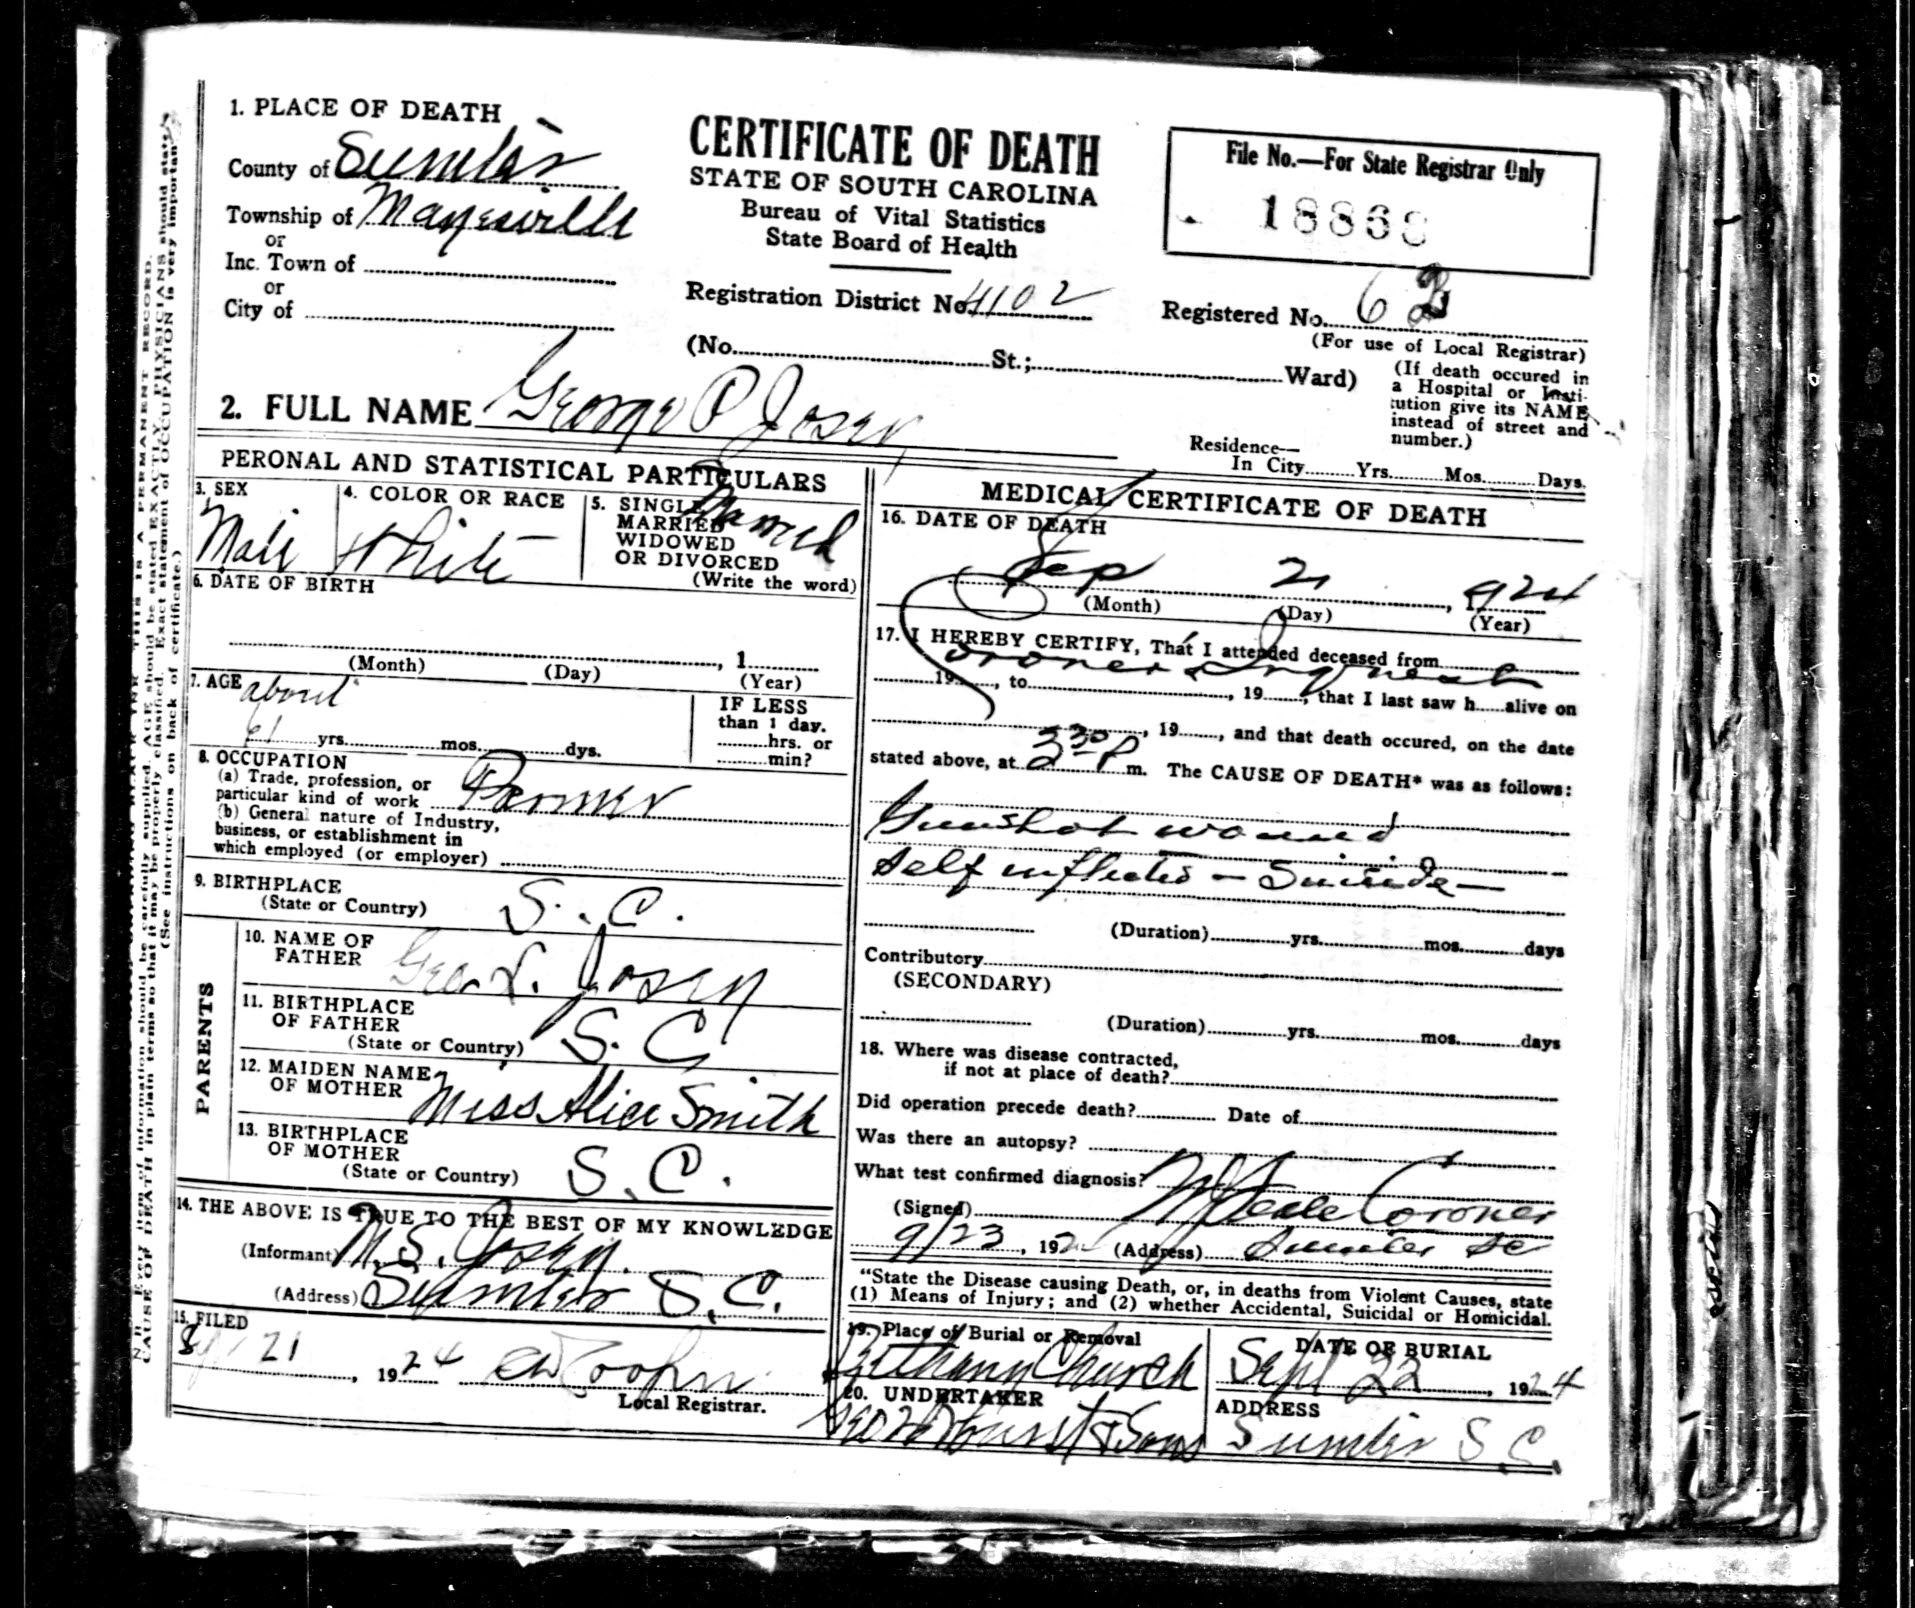 1. PLACE OF DEATH
County of Sumter
Township of Mayesville
or
Inc. Town of
or
City of
CERTIFICATE OF DEATH
STATE OF SOUTH CAROLINA
Bureau of Vital Statistics
State Board of Health
Registration District No. 4102
File No.—For State Registrar Only
18868
Registered No. 62
(For use of Local Registrar)
(No. St.; Ward)
(If death occured in
a Hospital or Insti-
tution give its NAME
instead of street and
number.)
2. FULL NAME George P Josey
Residence—
In City Yrs. Mos. Days.
PERONAL AND STATISTICAL PARTICULARS
3. SEX
Male
4. COLOR OR RACE
White
5. SINGLE
MARRIED
WIDOWED
OR DIVORCED
(Write the word)
Married
6. DATE OF BIRTH
, 1
(Month) (Day) (Year)
7. AGE about
61 yrs. mos. dys.
IF LESS
than 1 day.
hrs. or
min?
8. OCCUPATION
(a) Trade, profession, or
particular kind of work Farmer
(b) General nature of Industry,
business, or establishment in
which employed (or employer)
9. BIRTHPLACE
(State or Country) S. C.
PARENTS
10. NAME OF
FATHER Geo. L. Josey
11. BIRTHPLACE
OF FATHER
(State or Country) S. C
12. MAIDEN NAME
OF MOTHER Miss Alice Smith
13. BIRTHPLACE
OF MOTHER
(State or Country) S. C.
14. THE ABOVE IS TRUE TO THE BEST OF MY KNOWLEDGE
(Informant) M. S. Josey.
(Address) Sumter S. C.
15. FILED
21, 1924
Local Registrar.
MEDICAL CERTIFICATE OF DEATH
16. DATE OF DEATH
Sep 21, 1924
(Month) (Day) (Year)
17. I HEREBY CERTIFY, That I attended deceased from
Coroner Inquest
19 , to , 19 , that I last saw h alive on
, 19 , and that death occured, on the date
stated above, at 3 30 P m. The CAUSE OF DEATH* was as follows:
Gunshot wound
self inflicted - Suicide -
(Duration) yrs. mos. days
Contributory
(SECONDARY)
(Duration) yrs. mos. days
18. Where was disease contracted,
if not at place of death?
Did operation precede death? Date of
Was there an autopsy?
What test confirmed diagnosis?
(Signed) Seale Coroner
9/23, 192 (Address) Sumter SC
"State the Disease causing Death, or, in deaths from Violent Causes, state
(1) Means of Injury; and (2) whether Accidental, Suicidal or Homicidal.
19. Place of Burial or Removal
Bethany Church
DATE OF BURIAL
Sept 22, 1924
20. UNDERTAKER
Hurst & Sons
ADDRESS
Sumter S. C.
THIS IS A PERMANENT RECORD.
N. B. Every item of information should be carefully supplied. AGE should be stated EXACTLY. PHYSICIANS should state
CAUSE OF DEATH in plain terms so that it may be properly classified. Exact statement of OCCUPATION is very important.
(See instructions on back of certificate.)